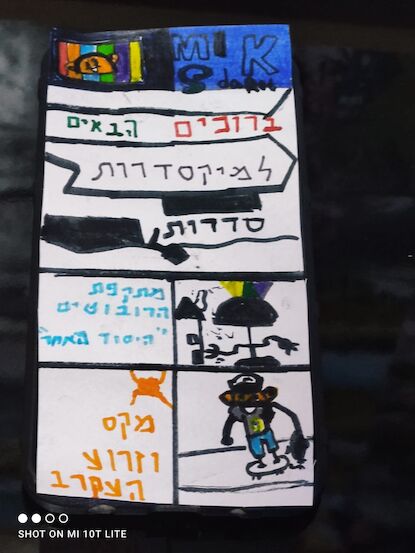 MIK
ברוכים הבאים
למיקסדרות
סדרות
מתקפת
הרובוטים
"היסוד האחר"
מקס
וזרוע
העקרב
SHOT ON MI 10T LITE